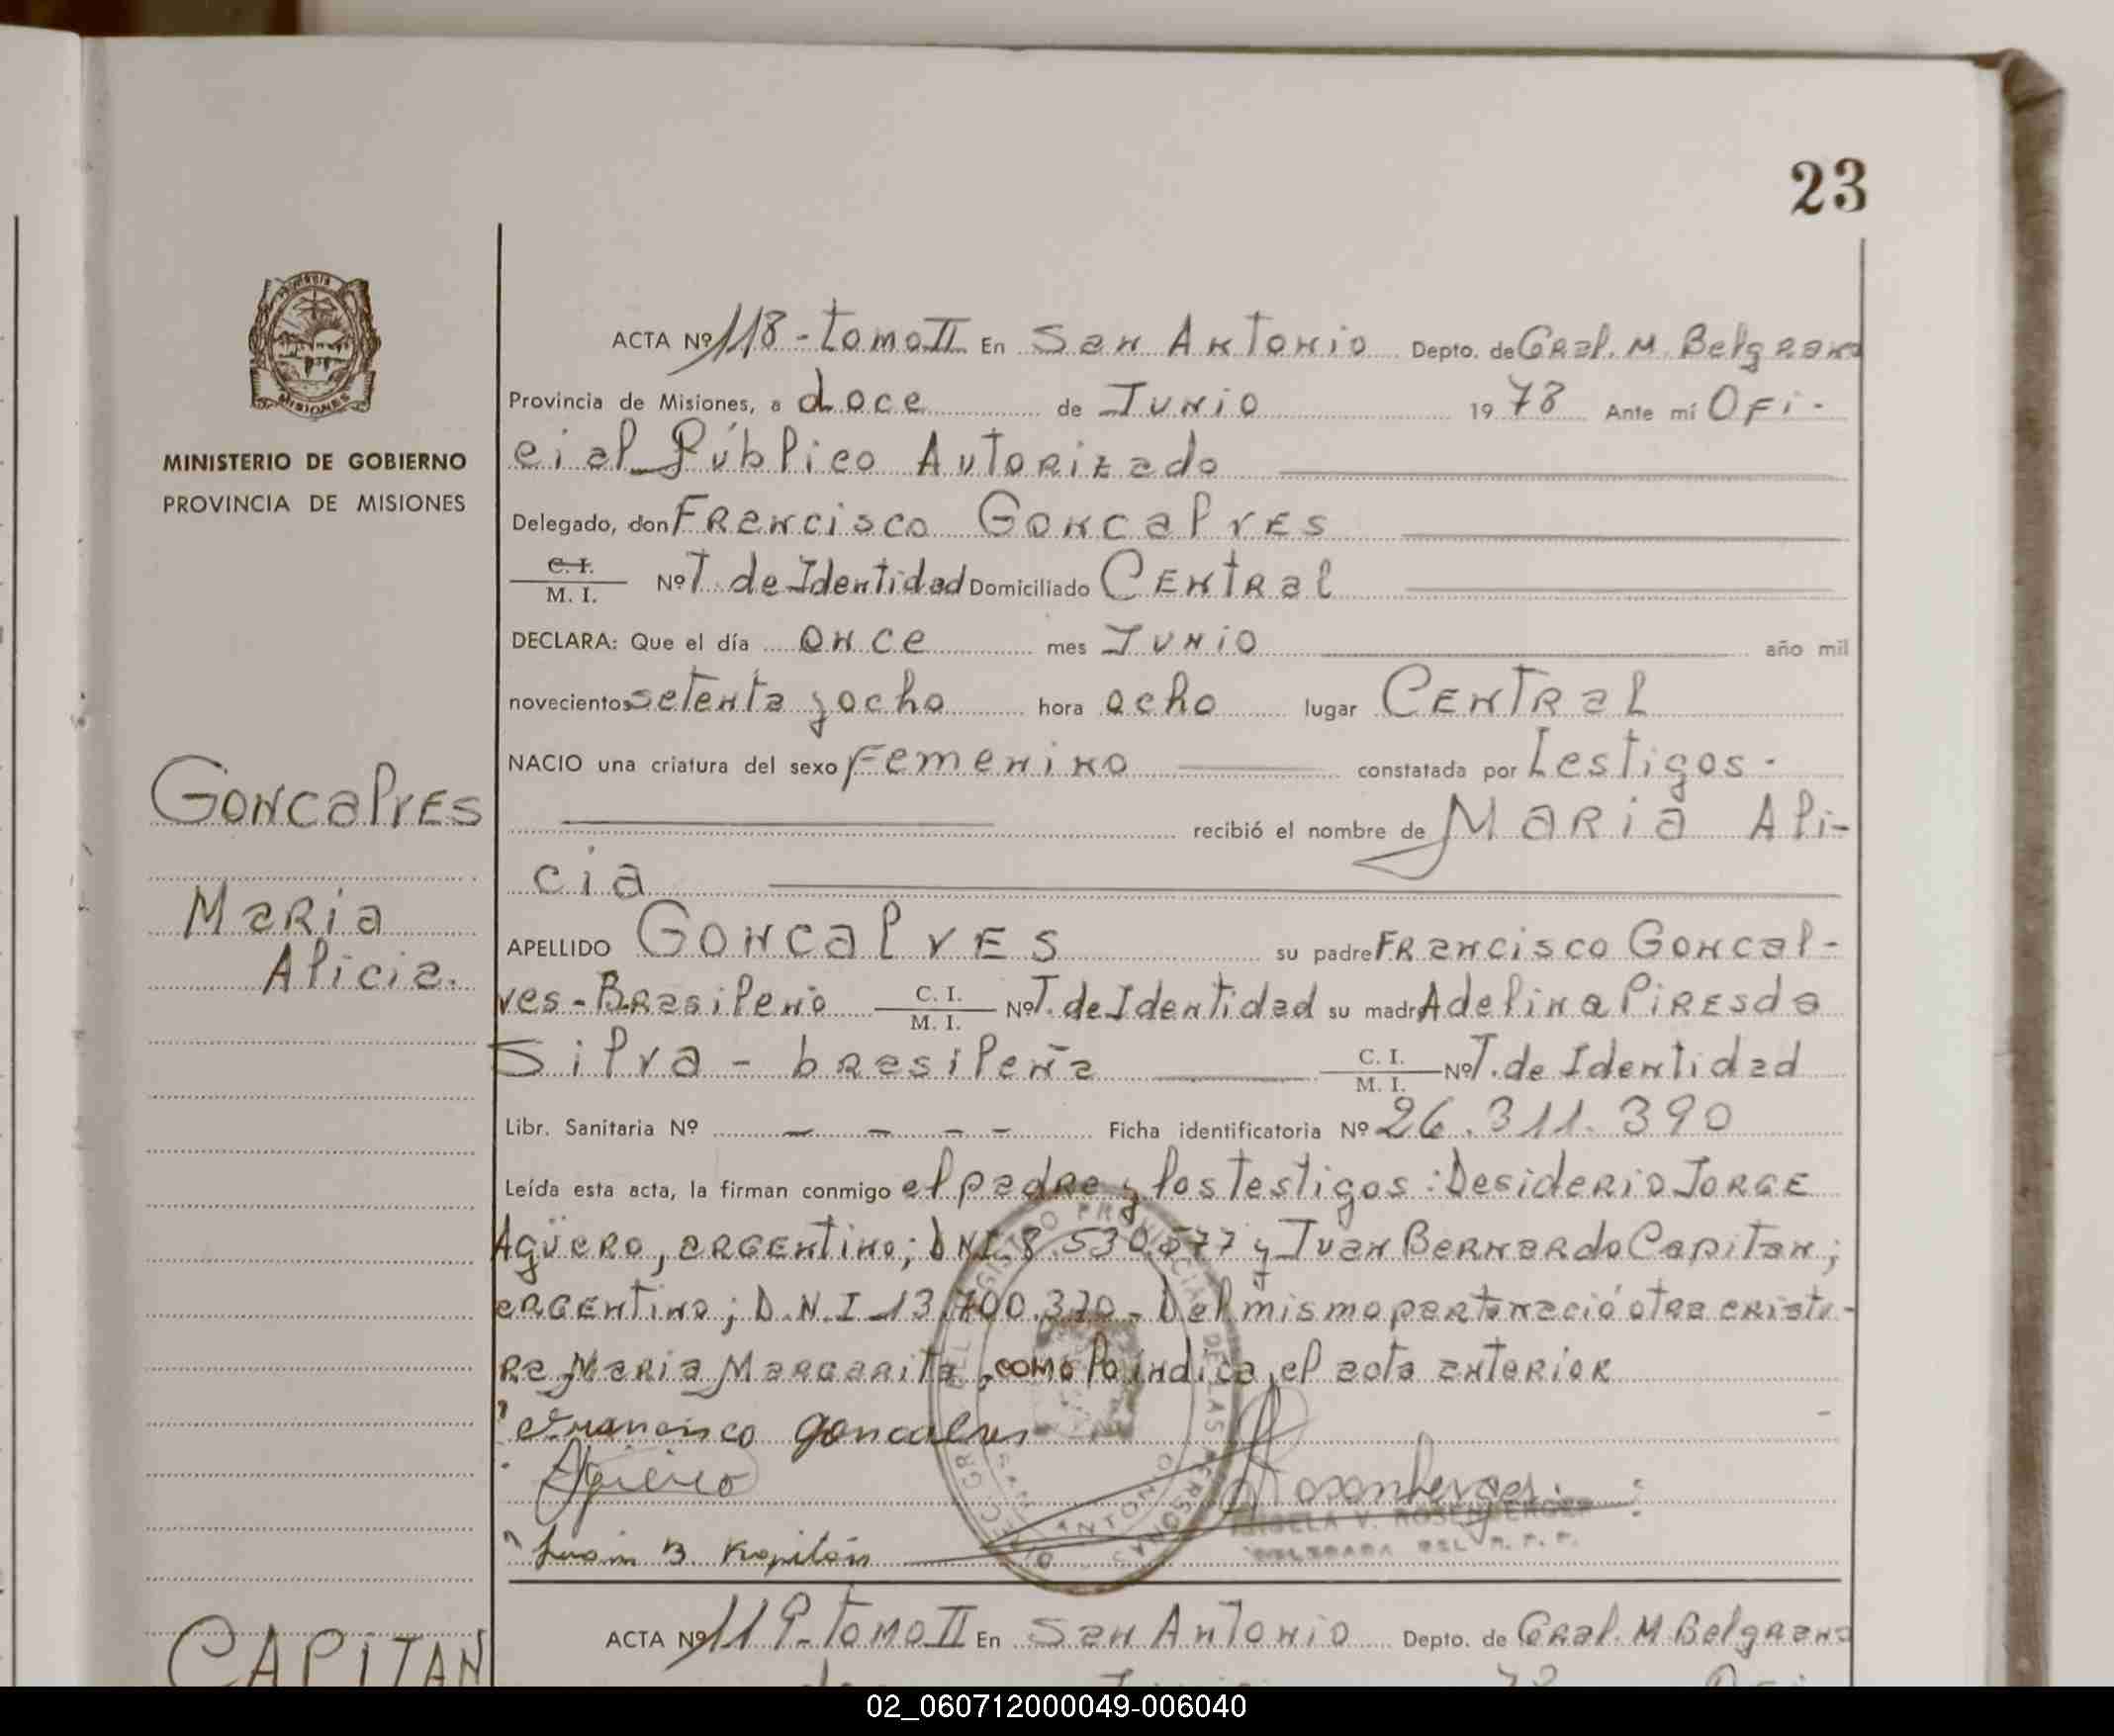 23
ACTA Nº 118 - tomo II En San Antonio Depto. de Gral. M. Belgrano
Provincia de Misiones, a doce de Junio 1978 Ante mí Ofi-
cial Público Autorizado
Delegado, don Francisco Goncalves
C. I.
M. I. Nº T. de Identidad Domiciliado Central
DECLARA: Que el día once mes Junio año mil
novecientos setenta y ocho hora ocho lugar Central
NACIO una criatura del sexo Femenino constatada por testigos.
recibió el nombre de Maria Ali-
cia
APELLIDO Goncalves su padre Francisco Goncal-
ves - Brasileño C. I. M. I. Nº T. de Identidad su madre Adelina Pires da
Silva - brasileña C. I. M. I. Nº T. de Identidad
Libr. Sanitaria Nº - - - - Ficha identificatoria Nº 26.311.390
Leída esta acta, la firman conmigo el padre y los testigos: Desiderio Jorge
Agüero, argentino; DNI. 8.530.577 y Juan Bernardo Capitan;
argentino; D.N.I 13.700.370 - Del mismo parto nació otra criatu-
ra Maria Margarita, como lo indica el acta anterior
Francisco goncalves
Agüero
Juan B. Kapitán
Rosenberger
GISELA V. ROSENBERGER
DELEGADA DEL R. P. P.
MISIONES
MINISTERIO DE GOBIERNO
PROVINCIA DE MISIONES
Goncalves
Maria
Alicia.
ACTA Nº 119 - Tomo II En San Antonio Depto. de Gral. M. Belgrano
CAPITAN
02_060712000049-006040